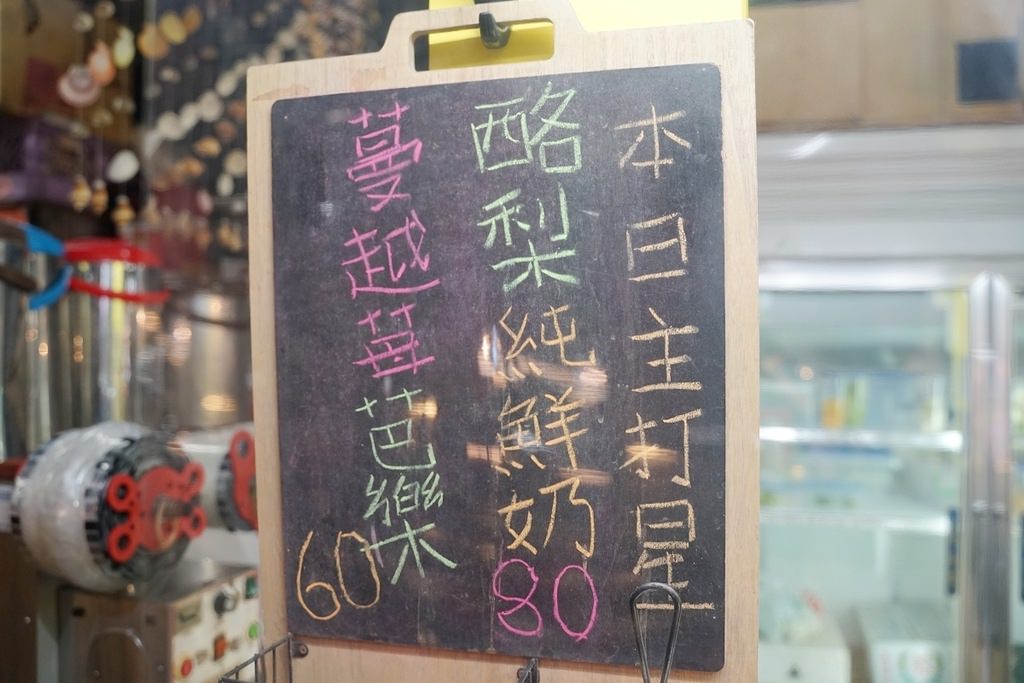 本日主打星
酪梨純鮮奶80
蔓越莓芭樂60